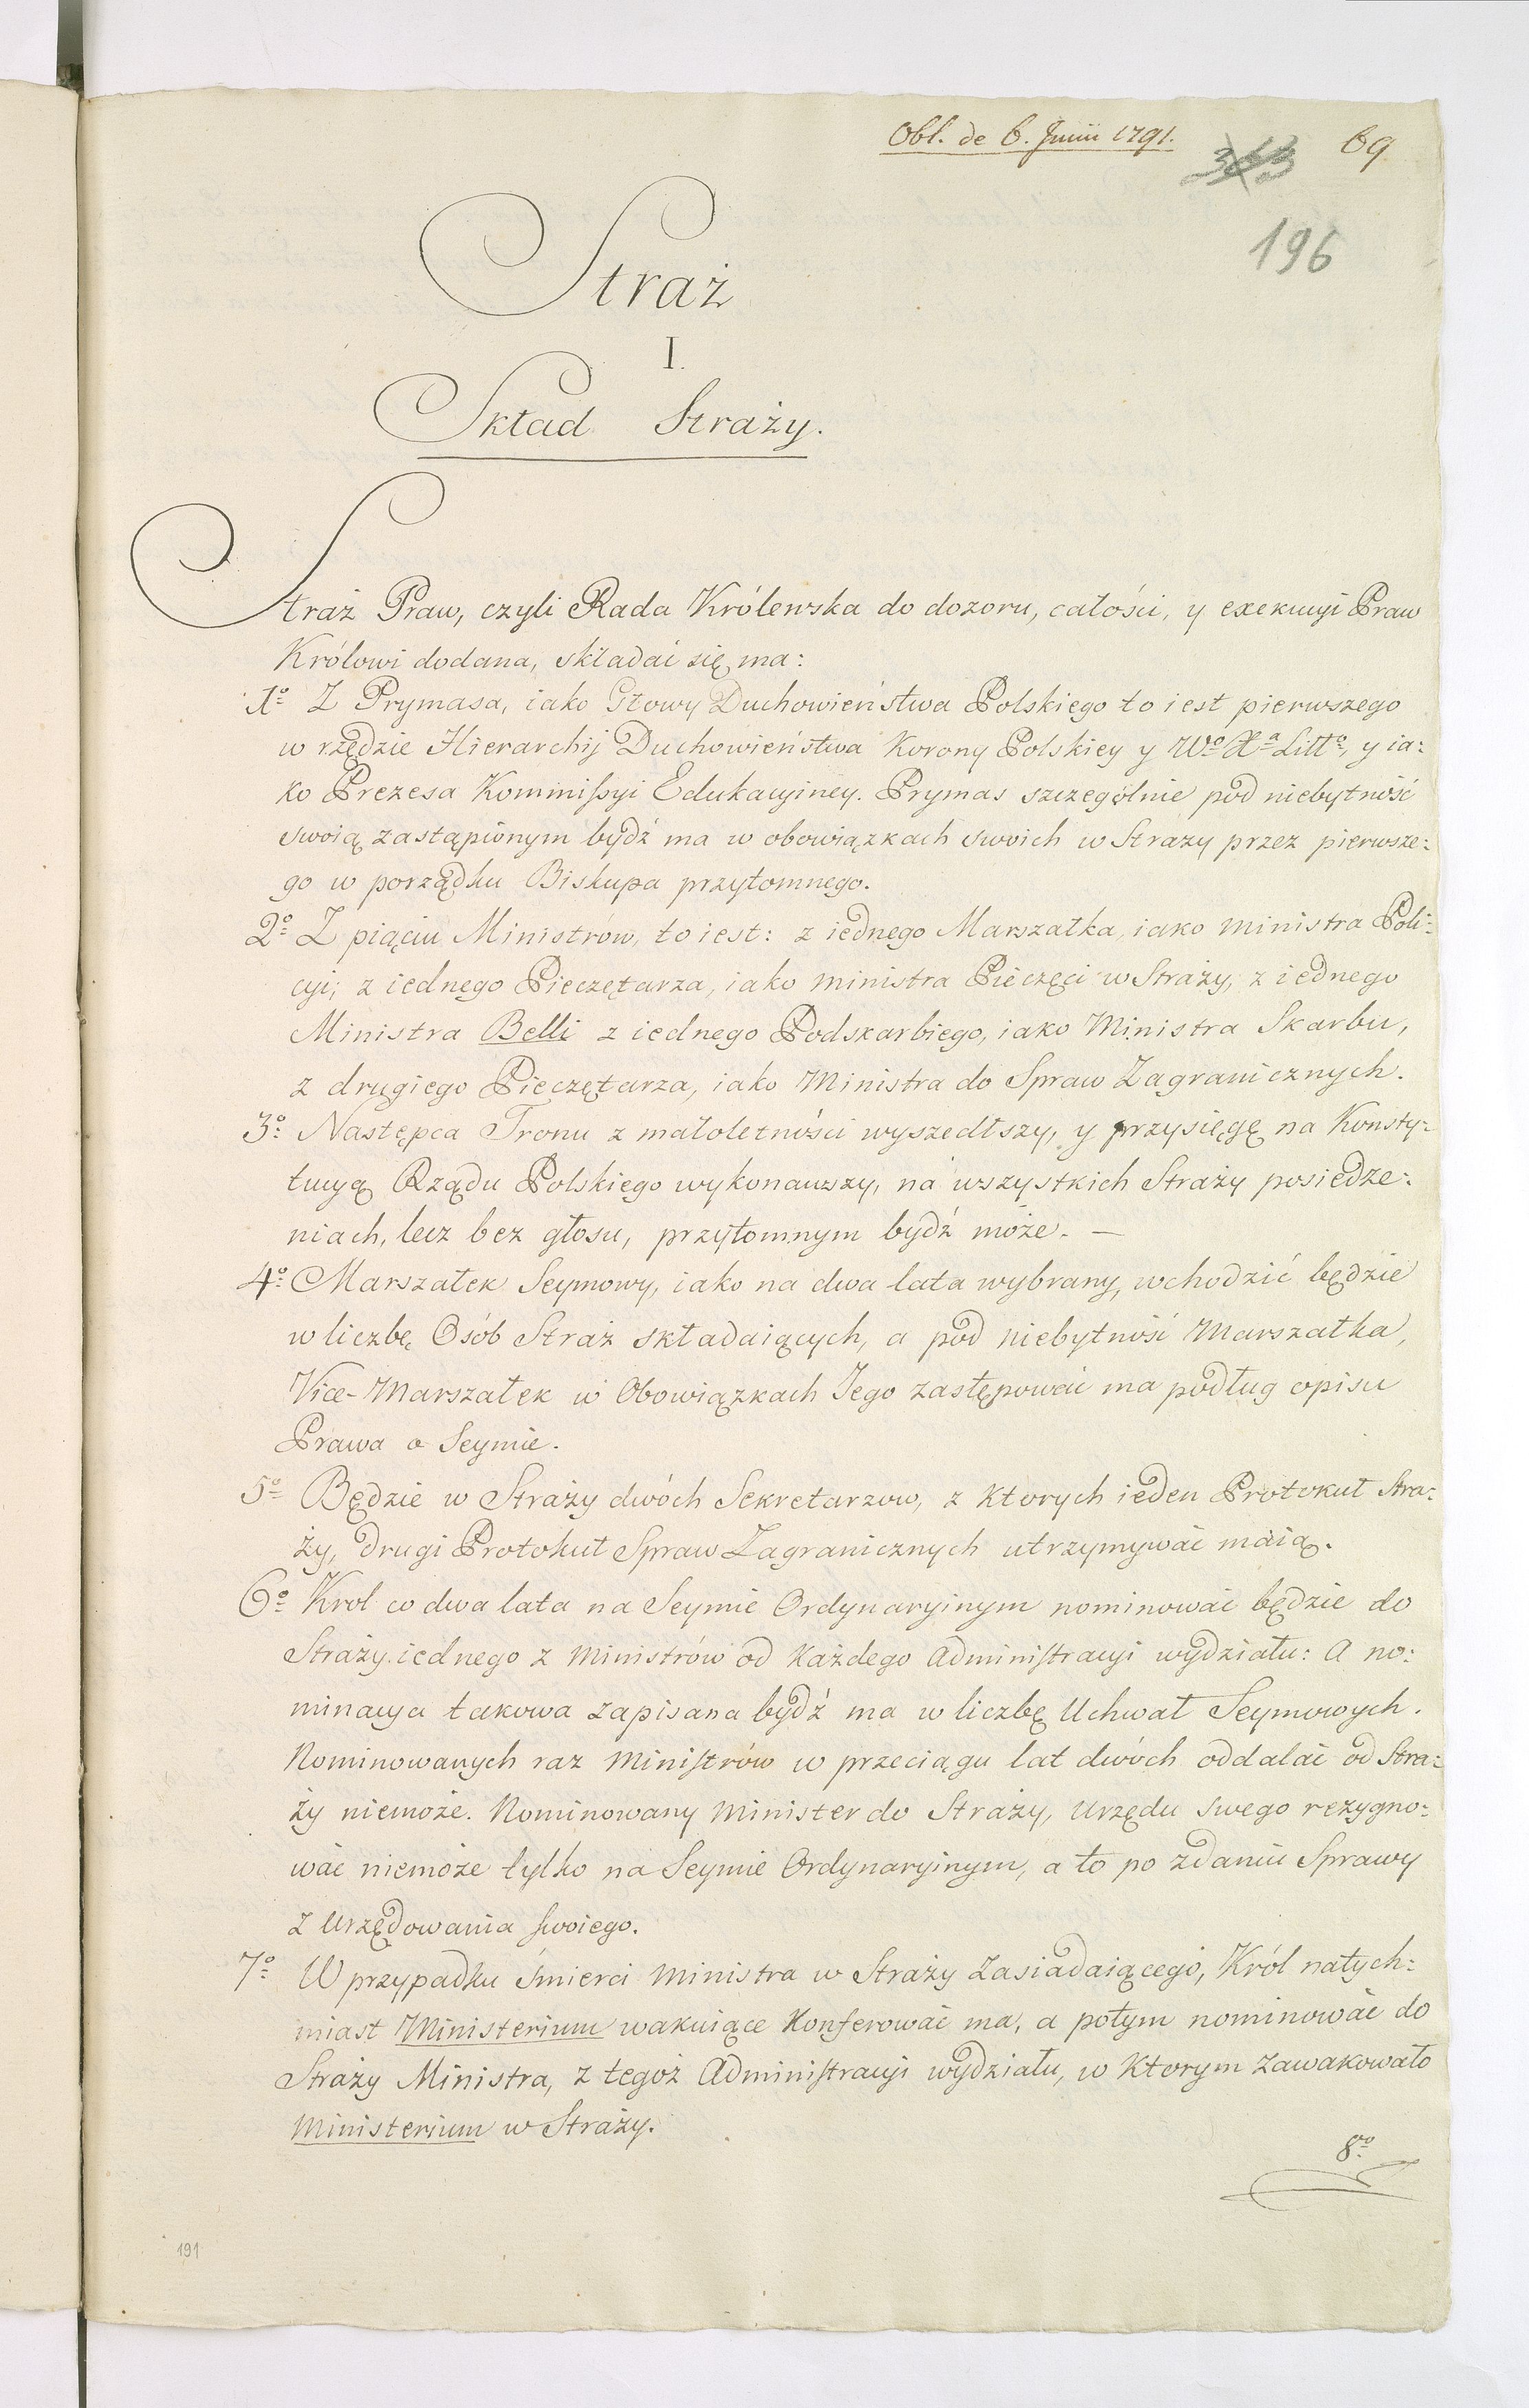 Obl. de 6. Junii 1791.
363 69
196
Straż
I.
Skład Straży.
Straż Praw, czyli Rada Królewska do dozoru, całości, y exekucyi Praw
Królowi dodana, składać się ma:
1º Z Prymasa, iako Głowy Duchowieństwa Polskiego to iest pierwszego
w rzędzie Hierarchij Duchowieństwa Korony Polskiey y Wº Xª Littº, y ia:
ko Prezesa Kommissyi Edukacyiney. Prymas szczególnie pod niebytność
swoią zastąpionym bydź ma w obowiązkach swoich w Straży przez pierwsze:
go w porządku Biskupa przytomnego.
2º Z piąciu Ministrów, to iest: z iednego Marszałka, iako Ministra Poli:
cyi; z iednego Pieczętarza, iako Ministra Pieczęci w Straży, z iednego
Ministra Belli z iednego Podskarbiego, iako Ministra Skarbu,
z drugiego Pieczętarza, iako Ministra do Spraw Zagranicznych.
3º Następca Tronu z małoletności wyszedłszy, y przysięgę na Konsty:
tucyą Rządu Polskiego wykonawszy, na wszystkich Straży posiedze:
niach, lecz bez głosu, przytomnym bydź może. —
4º Marszałek Seymowy, iako na dwa lata wybrany, wchodzić będzie
w liczbę Osób Straż składaiących, a pod niebytność Marszałka,
Vice-Marszałek w Obowiązkach Jego zastępować ma podług opisu
Prawa o Seymie.
5º Będzie w Straży dwóch Sekretarzow, z ktorych ieden Protokuł Stra:
ży, drugi Protokuł Spraw Zagranicznych utrzymywać maią.
6º Krol co dwa lata na Seymie Ordynaryinym nominować będzie do
Straży iednego z Ministrów od każdego Administracyi wydziału: A no:
minacya takowa zapisana bydź ma w liczbę Uchwał Seymowych.
Nominowanych raz Ministrów w przeciągu lat dwóch oddalać od Stra:
ży niemoże. Nominowany Minister do Straży, Urzędu swego rezygno:
wać niemoże tylko na Seymie Ordynaryinym, a to po zdaniu Sprawy
z Urzędowania swoiego.
7º W przypadku śmierci Ministra w Straży Zasiadaiącego, Król natych:
miast Ministerium wakuiące Konferować ma, a potym nominować do
Straży Ministra, z tegoż Administracyi wydziału, w Ktorym zawakowało
Ministerium w Straży.
8vo
191